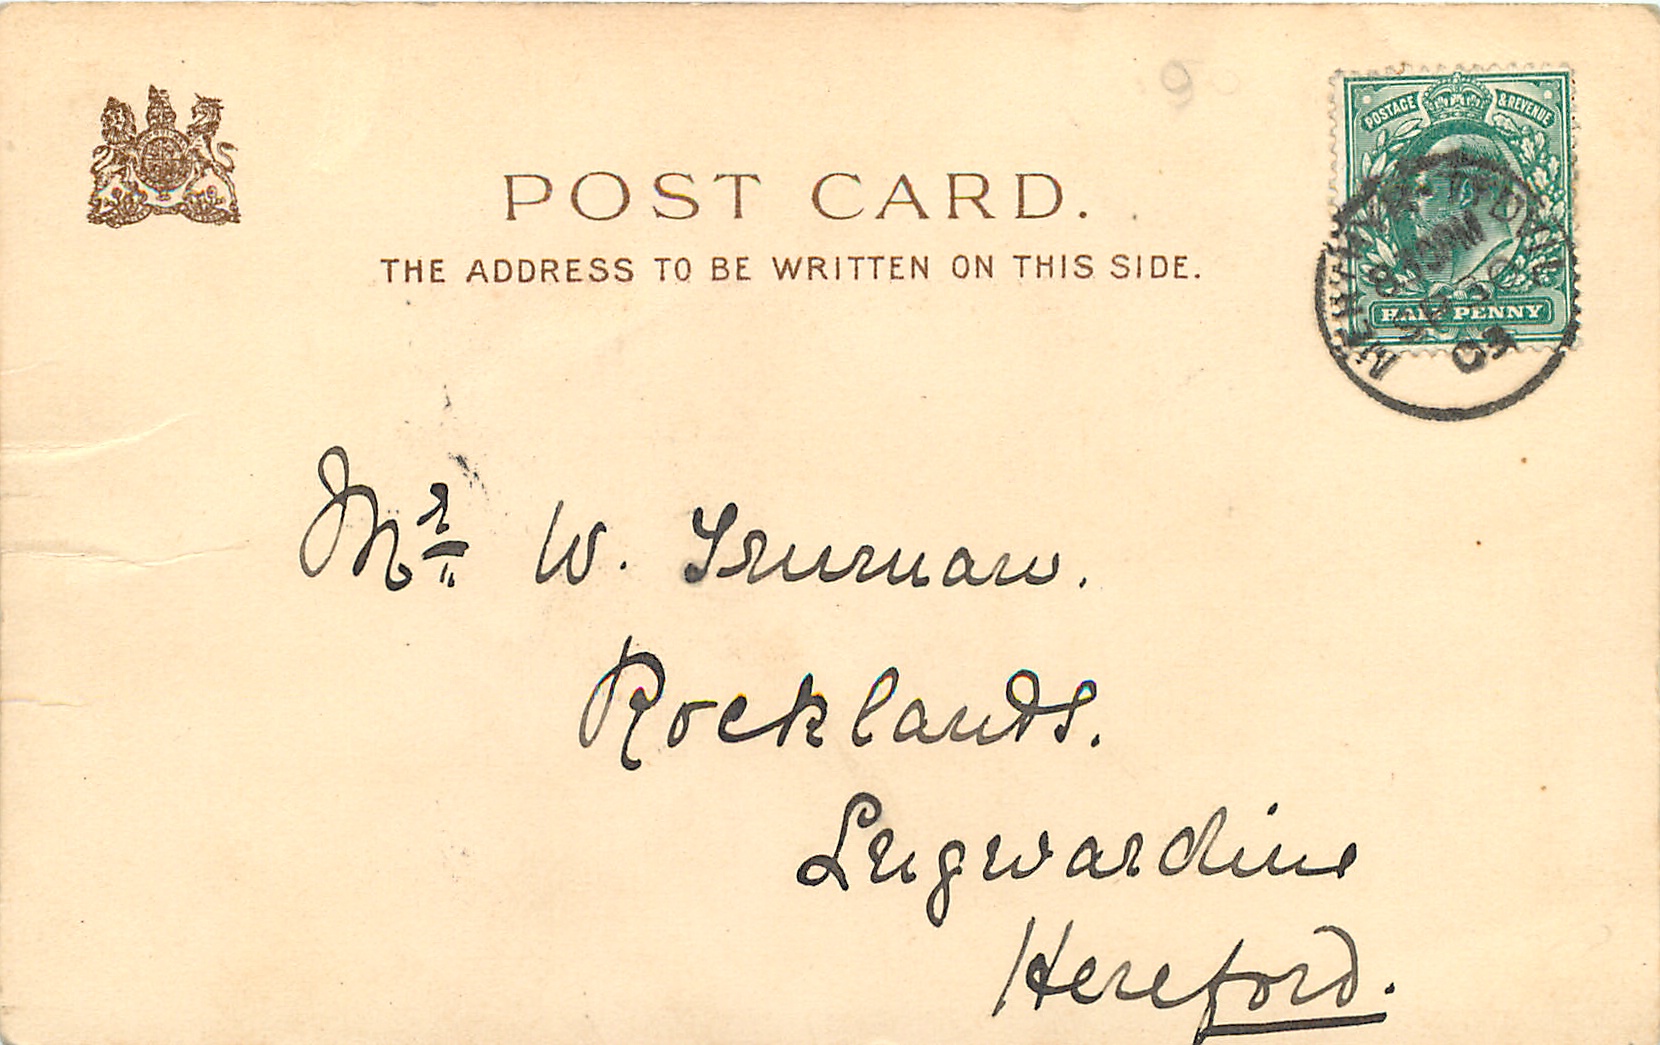 POST CARD.
THE ADDRESS TO BE WRITTEN ON THIS SIDE.
POSTAGE & REVENUE
HALF PENNY
9
Mr W. Truman.
Rocklands.
Lugwardine
Hereford.